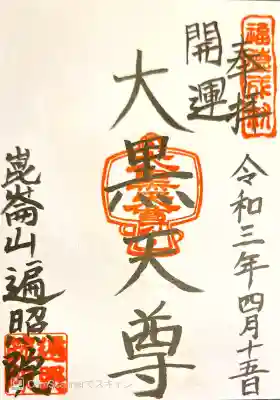 奉拝
開運
大黒天尊
令和三年四月十五日
崑崙山遍照院
CamScannerでスキャン